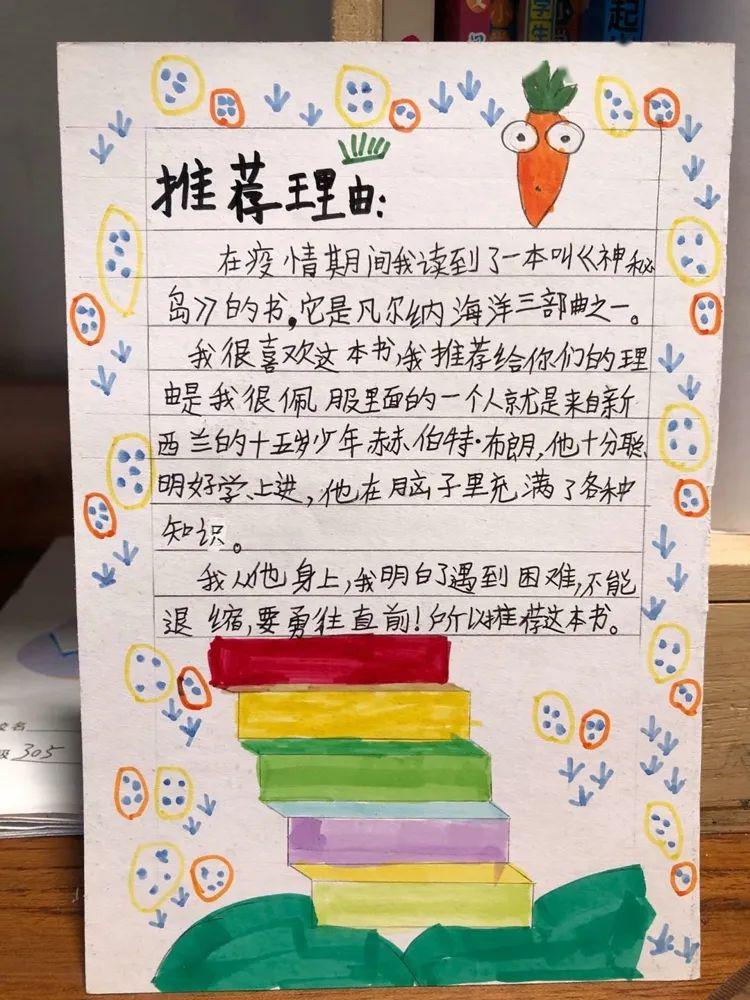 推荐理由:
在疫情期间我读到了一本叫《神秘
岛》的书,它是凡尔纳海洋三部曲之一。
我很喜欢这本书,我推荐给你们的理
由是我很佩服里面的一个人就是来自新
西兰的十五岁少年赫伯特·布朗,他十分聪
明好学、上进,他在脑子里充满了各种
知识。
我从他身上,我明白了遇到困难,不能
退缩,要勇往直前!所以推荐这本书。
305